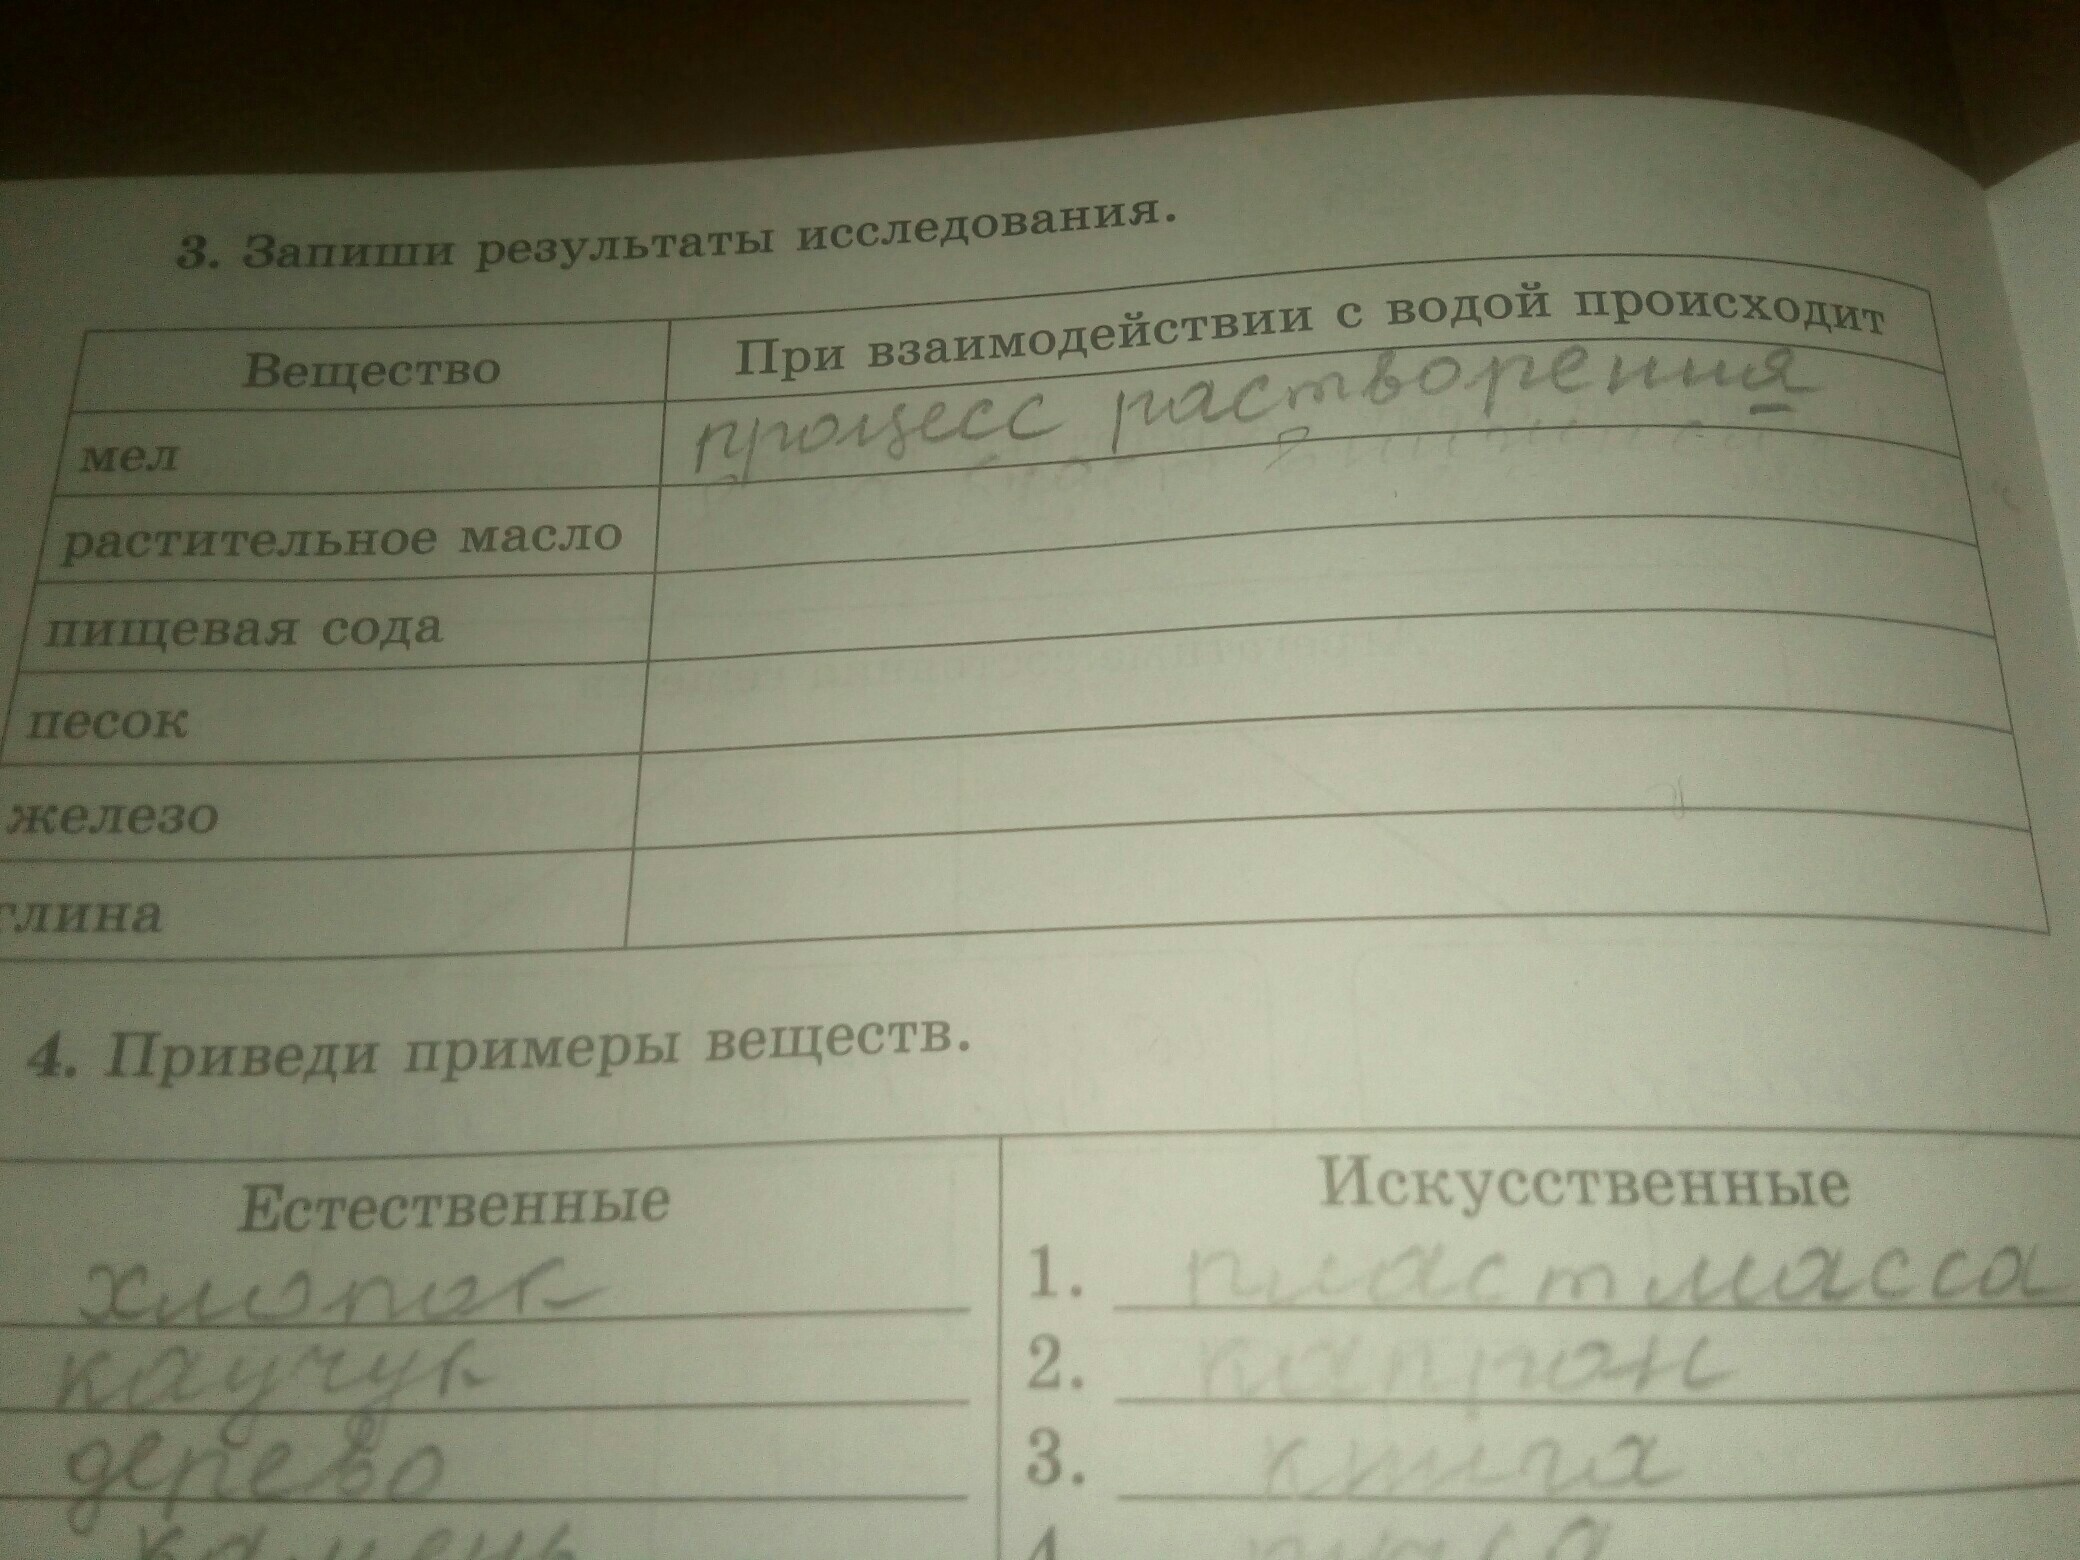 3. Запиши результаты исследования.
Вещество При взаимодействии с водой происходит
мел процесс растворения
растительное масло
пищевая сода
песок
железо
глина
4. Приведи примеры веществ.
Естественные Искусственные
хлопок 1. пластмасса
каучук 2. капрон
дерево 3. книга
камень 4.